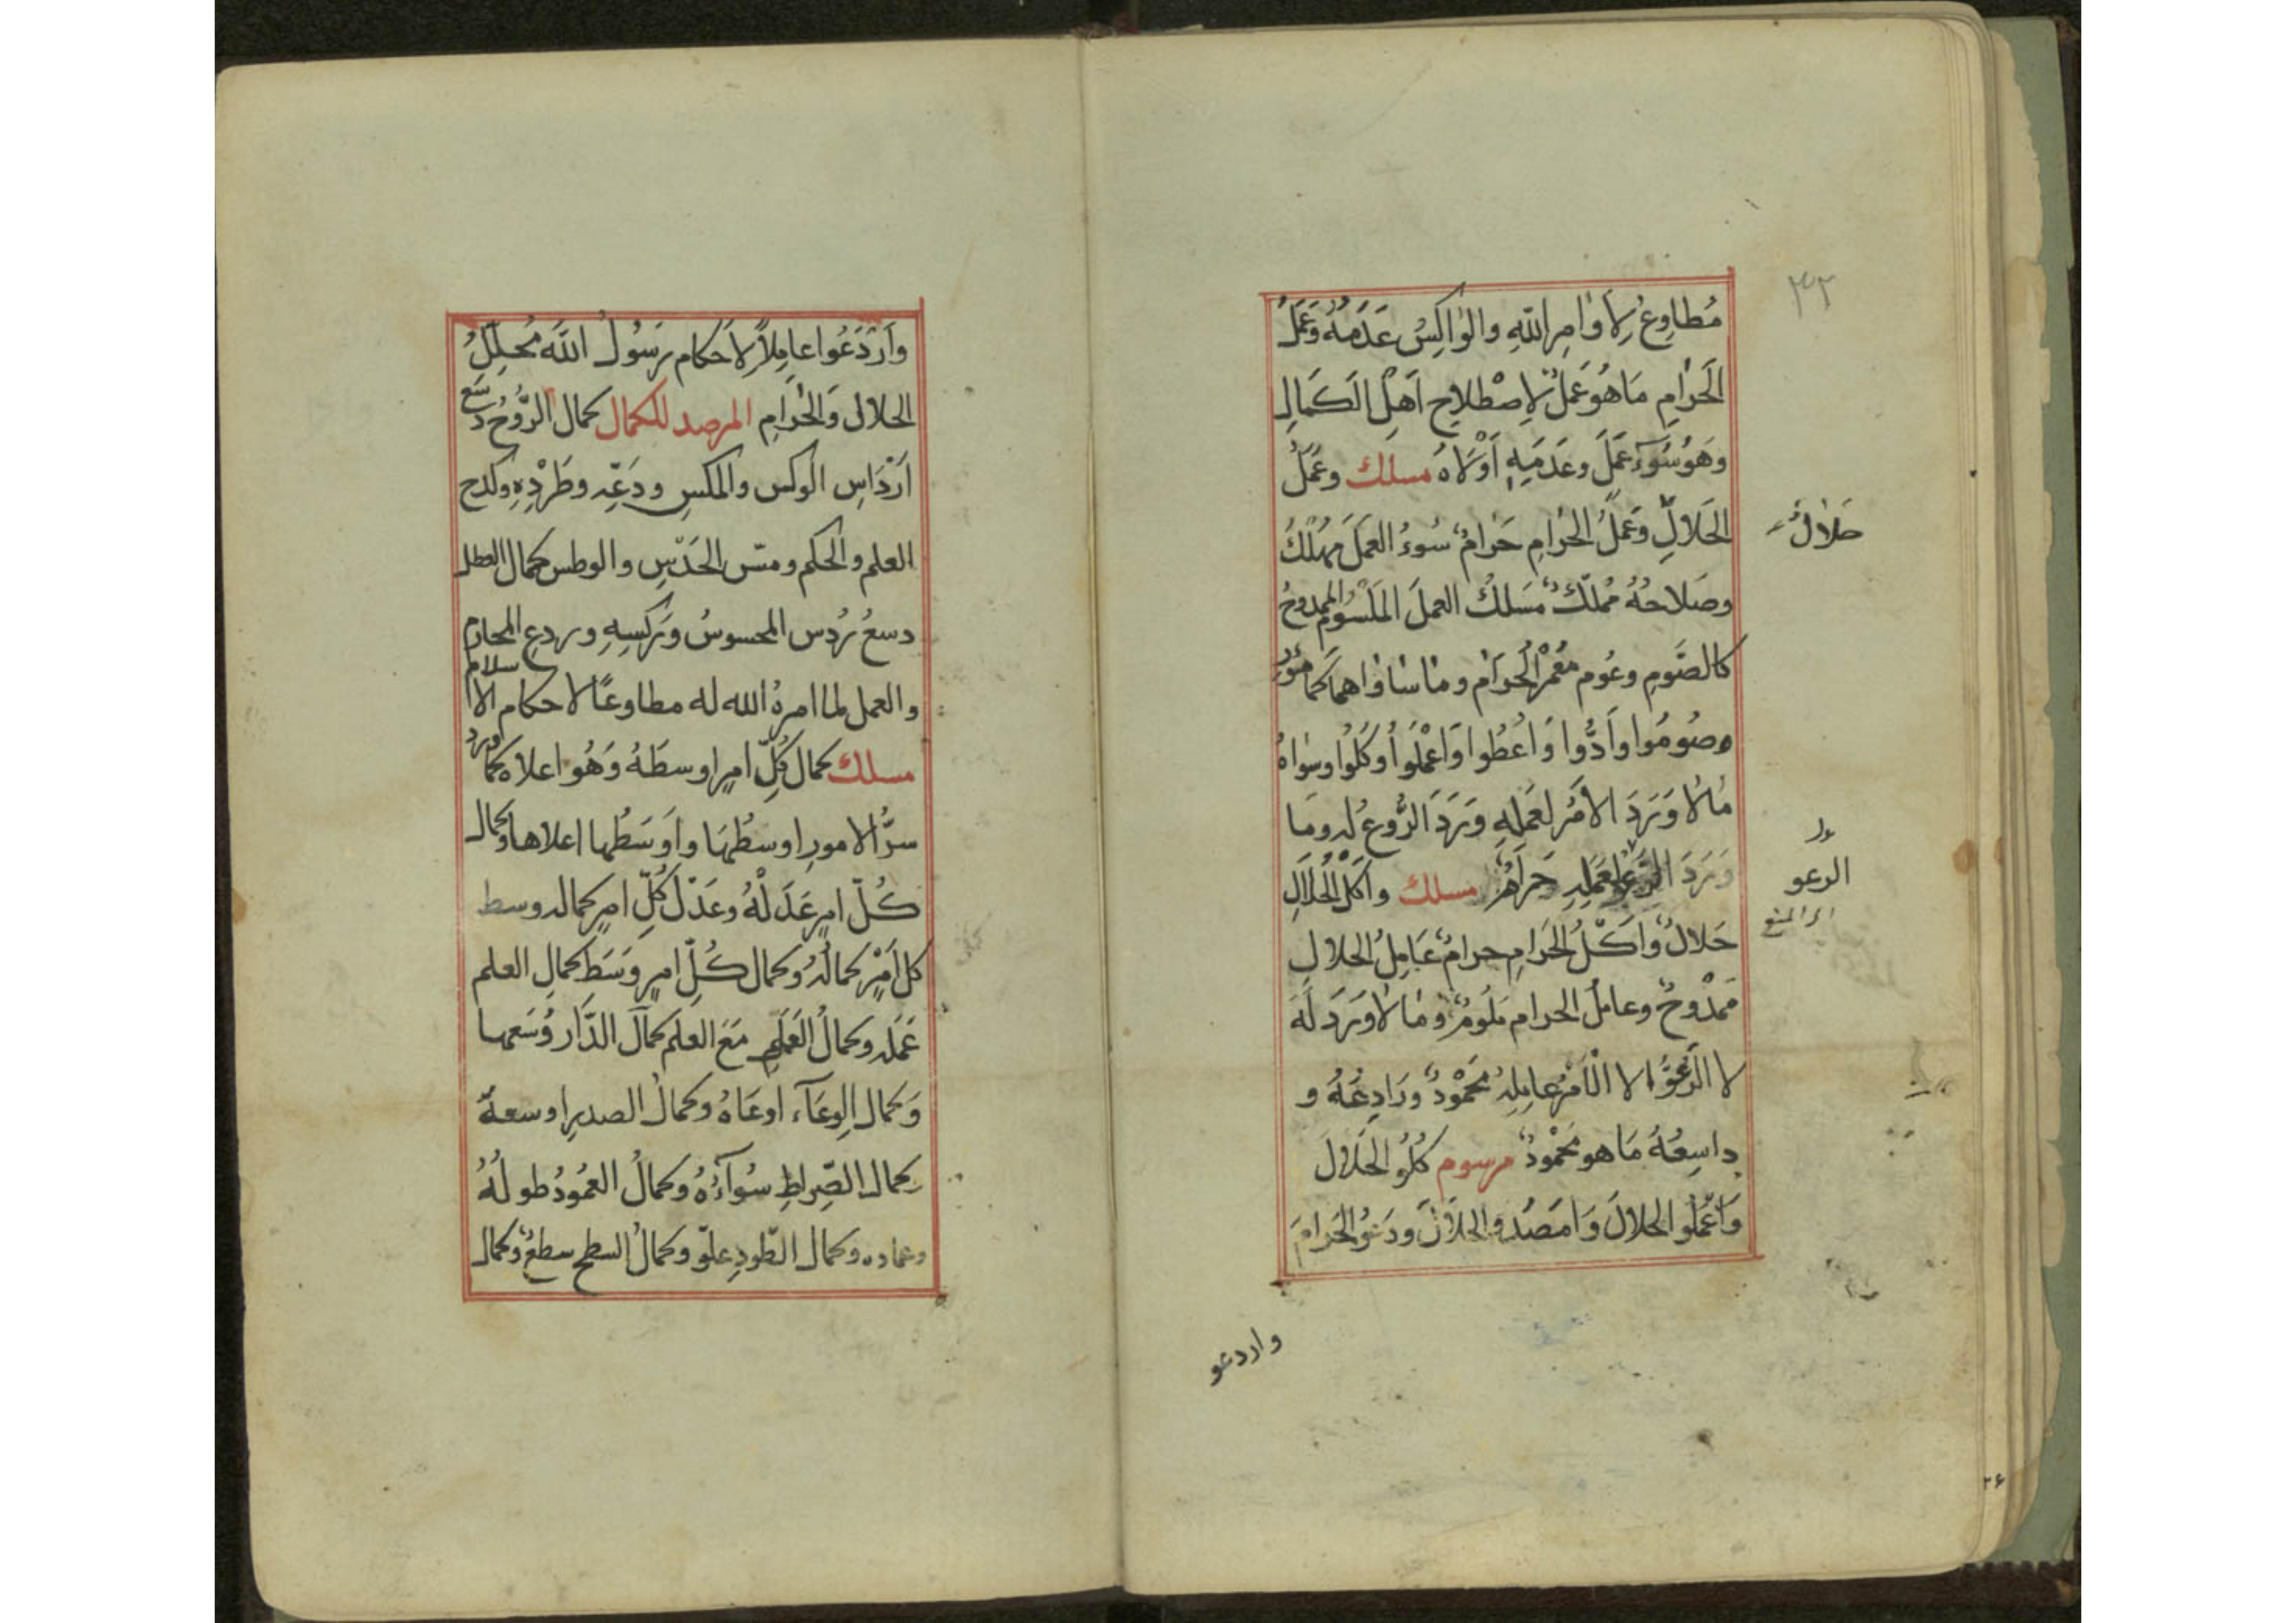 ٣٢
مُطاوِعُ لِاَوٰامِرِ اللّٰهِ والوٰاكِسُ عَدَمَهُ وَعَمَلُ
الحَرٰامِ مَا هُوَ عَمَلٌ لِاِصْطِلاحِ اَهْلِ الكَمالِ
وَهُوَ سُوٓءُ عَمَلٍ وعَدَمَهِ اَوْلاهُ مسلك وعَمَلُ
الحَلالِ وَعَمَلُ الحَرٰامِ حَرٰامٌ سُوءُ العَمَلِ مُهْلِكٌ
حَلالٌ
وصَلاحُهُ مُمَلِّكٌ مَسْلَكُ العمل المَرْسُوم الممدوحُ
كالصَّوم وعُوم الحرام وما ساواهما كما مورد
وصُومُوا وَاَدُّوا وَاعْطُوا وَاعْمَلُوا وَكُلُوا وسواهُ
مٰا لا وَرَدَ الاَمْرُ لعَمَلِهِ وَرَدَ الرَّوع له ومَا
وَرَدَ الرَّعو لعَمَلِهِ حَرٰامٌ مسلك واَكلُ الحَلالِ
الرعو
اى المنع
حَلالٌ وَاَكْلُ الحَرٰامِ حرامٌ عَامِلُ الحلالِ
مَمْدُوحٌ وعاملُ الحرام مَلُومٌ ومٰا لا وَرَدَ لَهُ
لا الرَّعْوُ الا الْاَمْرُ عامِلِهُ مَحْمُودٌ ورَادِعُهُ و
داسِعُهُ مَا هو مَحْمودٌ مرسوم كُلُو الحَلالَ
وَاعْمَلُو الحلالَ وَامصدو الحلالَ ودَعُو الحَرامَ
واردعو
وَاَرْدَعُوا عامِلاً لِاَحكام رَسُولُ اللّٰه مُحلِّلُ
الحلال وَالحَرٰامِ المرصد للكمال كمال الرُّوحُ دَسَع
اَرْدَاسِ الوكس والمكسِ ودَعِّه وطَرْدِهِ وكدح
العلم والحكم ومسّ الحَدْسِ والوطس كمال العطل
دسعُ رُدس المحسوسُ وَرَكسِهِ وردعِ المحارم
والعمل لما امرهُ الله له مطاوعًا لاحكام الاسلام
مسلك كمال كُلِّ امرٍ اوسطَهُ وَهُو اعلاه كما ورد
سرُّ الامورِ اوسطُهَا وَاَوْسَطُها اعلاها وكمال
كُلّ امرٍ عَدَلَهُ وعَدْل كُلّ امرٍ كماله وسط
كل اَمْرٍ كمالُهُ وكمال كُلِّ امرٍ وَسَط كمالِ العلم
عَمَله وكمالُ العَمَلِ مَعَ العلم كمال الدّار وُسَعها
وَكمال الوِعَآء اوعَاهُ وكمالُ الصدرِ اوسعهُ
كمال الصِّراطِ سُوآءُهُ وكمالُ العمُودُ طولُهُ
وعماده وكمال الطّودِ علوّ وكمالُ السطح سطعٌ وكمال